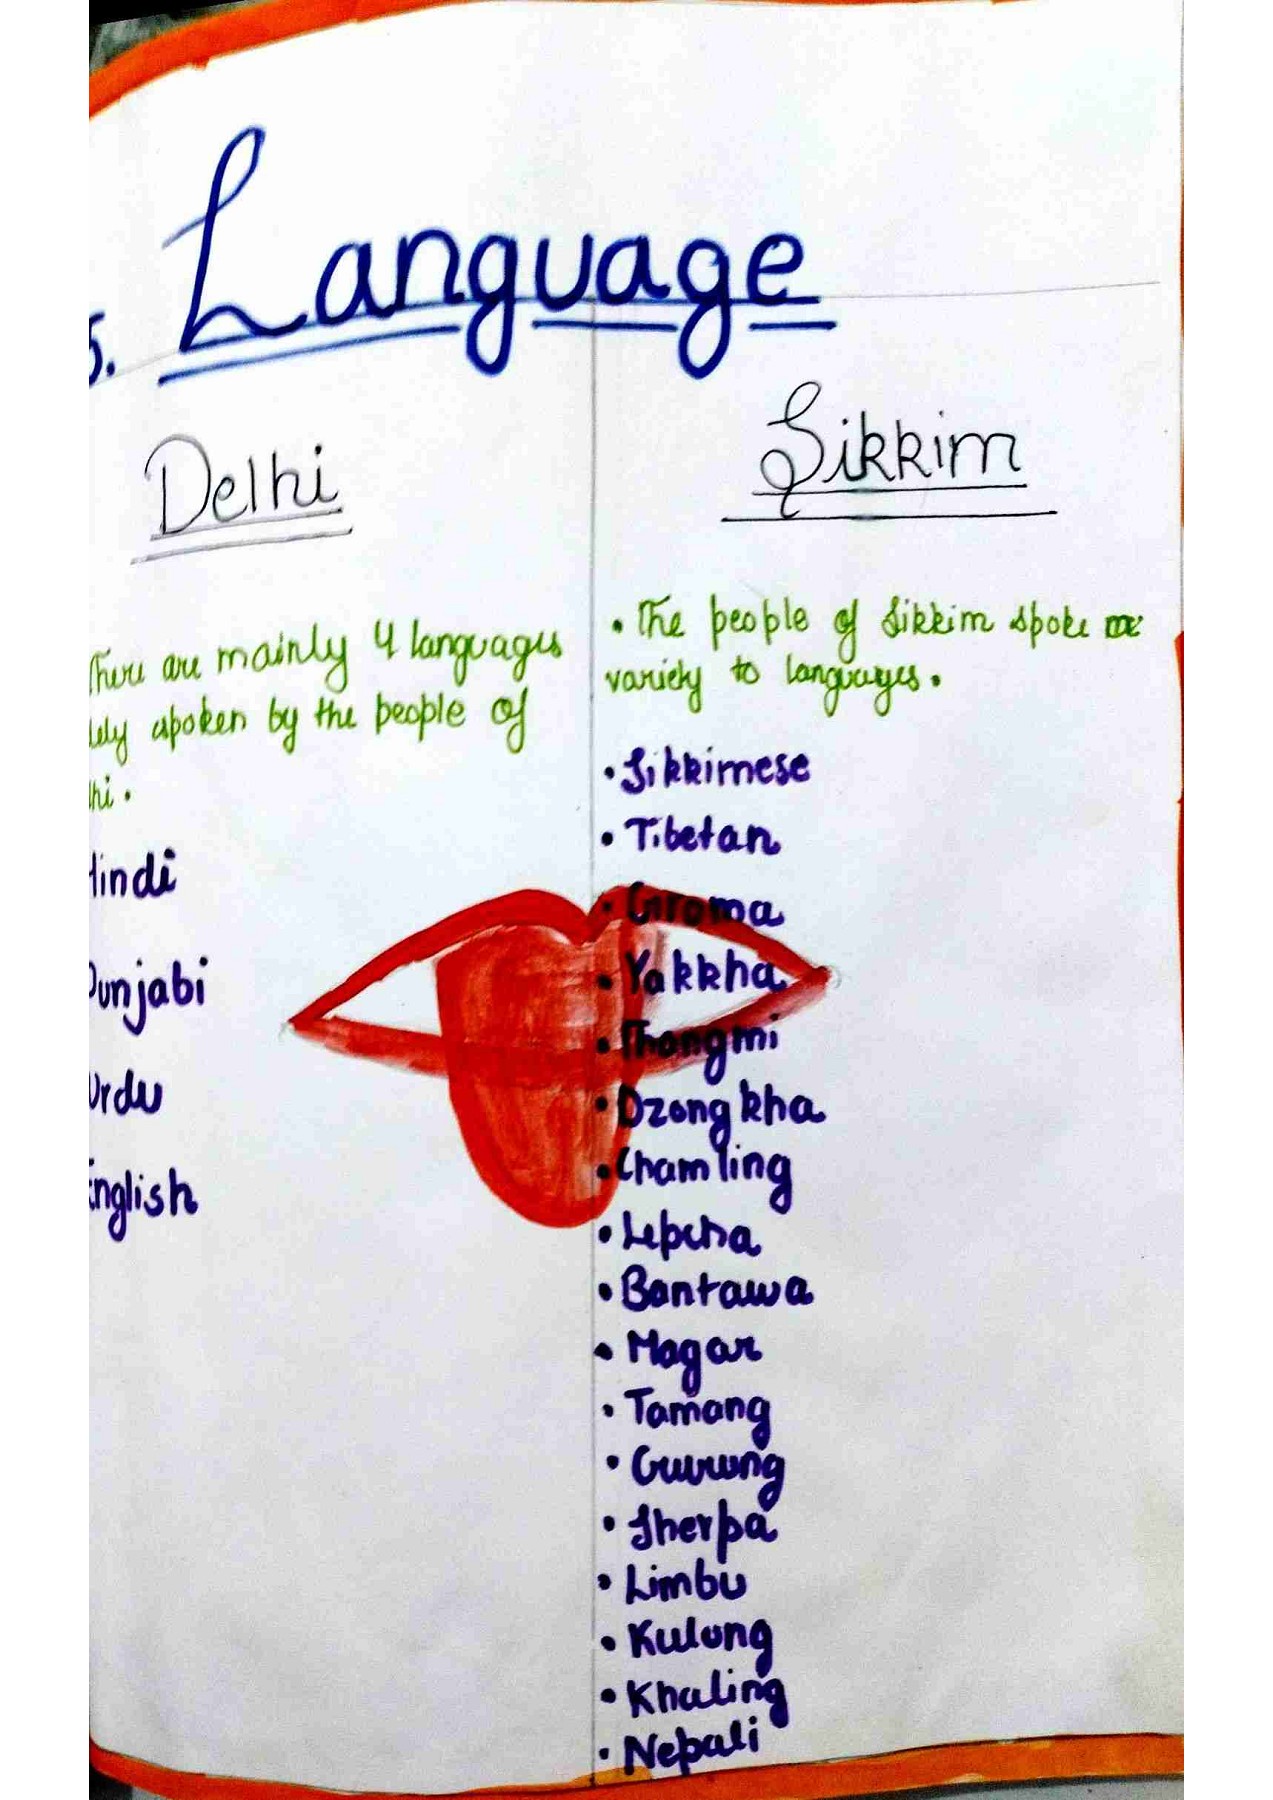 5. Language
Delhi
There are mainly 4 languages
spoken by the people of
hi.
Hindi
Punjabi
Urdu
English
Sikkim
• The people of Sikkim spoke
variety to languages.
• Sikkimese
• Tibetan
• Groma
• Yakkha
• Thangmi
• Dzongkha
• Chamling
• Lepcha
• Bantawa
• Magar
• Tamang
• Gurung
• Sherpa
• Limbu
• Kulung
• Khaling
• Nepali